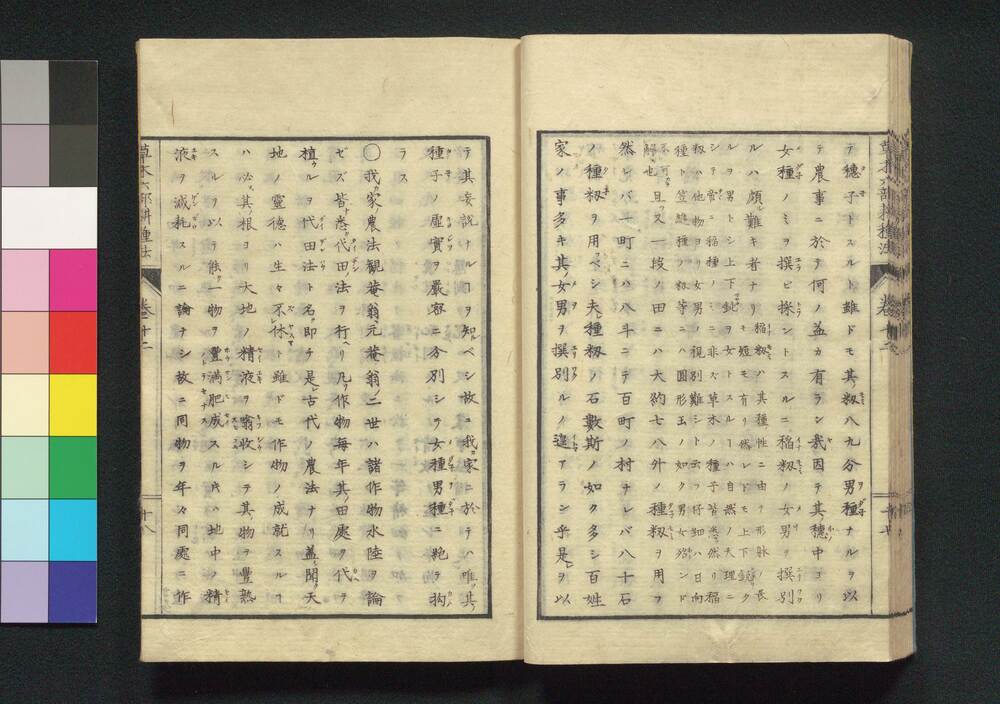 テ穗子トスルト雖ドモ其籾八九分男種ナルヲ以
テ農事ニ於テ何ノ益カ有ラン哉因テ其穗中ヨリ
女種ノミヲ撰ビ採ントスルニ稲籾ノ女男ヲ撰別
ルハ頗難キ者ナリ稲籾ハ其種性ニ由テ形脉ノ長
キモ短モ有リ然レドモ上下鋭ク
ルヲ男トシ上下鈍ヲ女トスルハ自然ノ天理ニ
シテ啻ニ稲種ノミニ非ズ草木ノ種子皆悉然リ稲
籾ハ他物ヨリ女男ノ視別難シト云ヘドモ仔細ハ日向
種ト笠縫種ノ籾等ニハ圓形玉ノ如ク男女殆ンド
不可解也且又一段ノ田ニハ大約七八外ノ種籾ヲ用フ
然レバ一町ニハ八斗ニテ百町ノ村ナレバ八十石
ノ種籾ヲ用ベシ夫レ種籾ノ石數斯ノ如ク多シ百姓
家ノ事多キ其女男ヲ撰別ルノ遑アラン乎是ヲ以
テ其妄説ナルヿヲ知ベシ故ニ我家ニ於テハ唯其
種子ノ虚實ヲ嚴容ニ分別シテ女種男種ニ絶テ拘
ラス
〇我家ノ農法觀菴翁元菴翁ノ二世ハ諸作物水陸ヲ論
ゼズ皆悉代田ノ法ヲ行ヘリ凡ソ作物毎年其ノ田處ヲ代テ
植ルヲ代田法ト名ク即チ是レ古代ノ農法ナリ蓋シ聞天
地ノ靈德ハ生々不休ト雖ドモ作物ノ成就スルヿ
ハ必ズ其根ヨリ大地ノ精液ヲ翕收シテ其物ヲ豐熟
スルヲ以テ能一物ヲ豐滿肥成スル片ハ地中ノ精
液ヲ減耗スルニ論ナシ故ニ同物ヲ年々同處ニ作
草木六部耕種法
卷二十二
十八